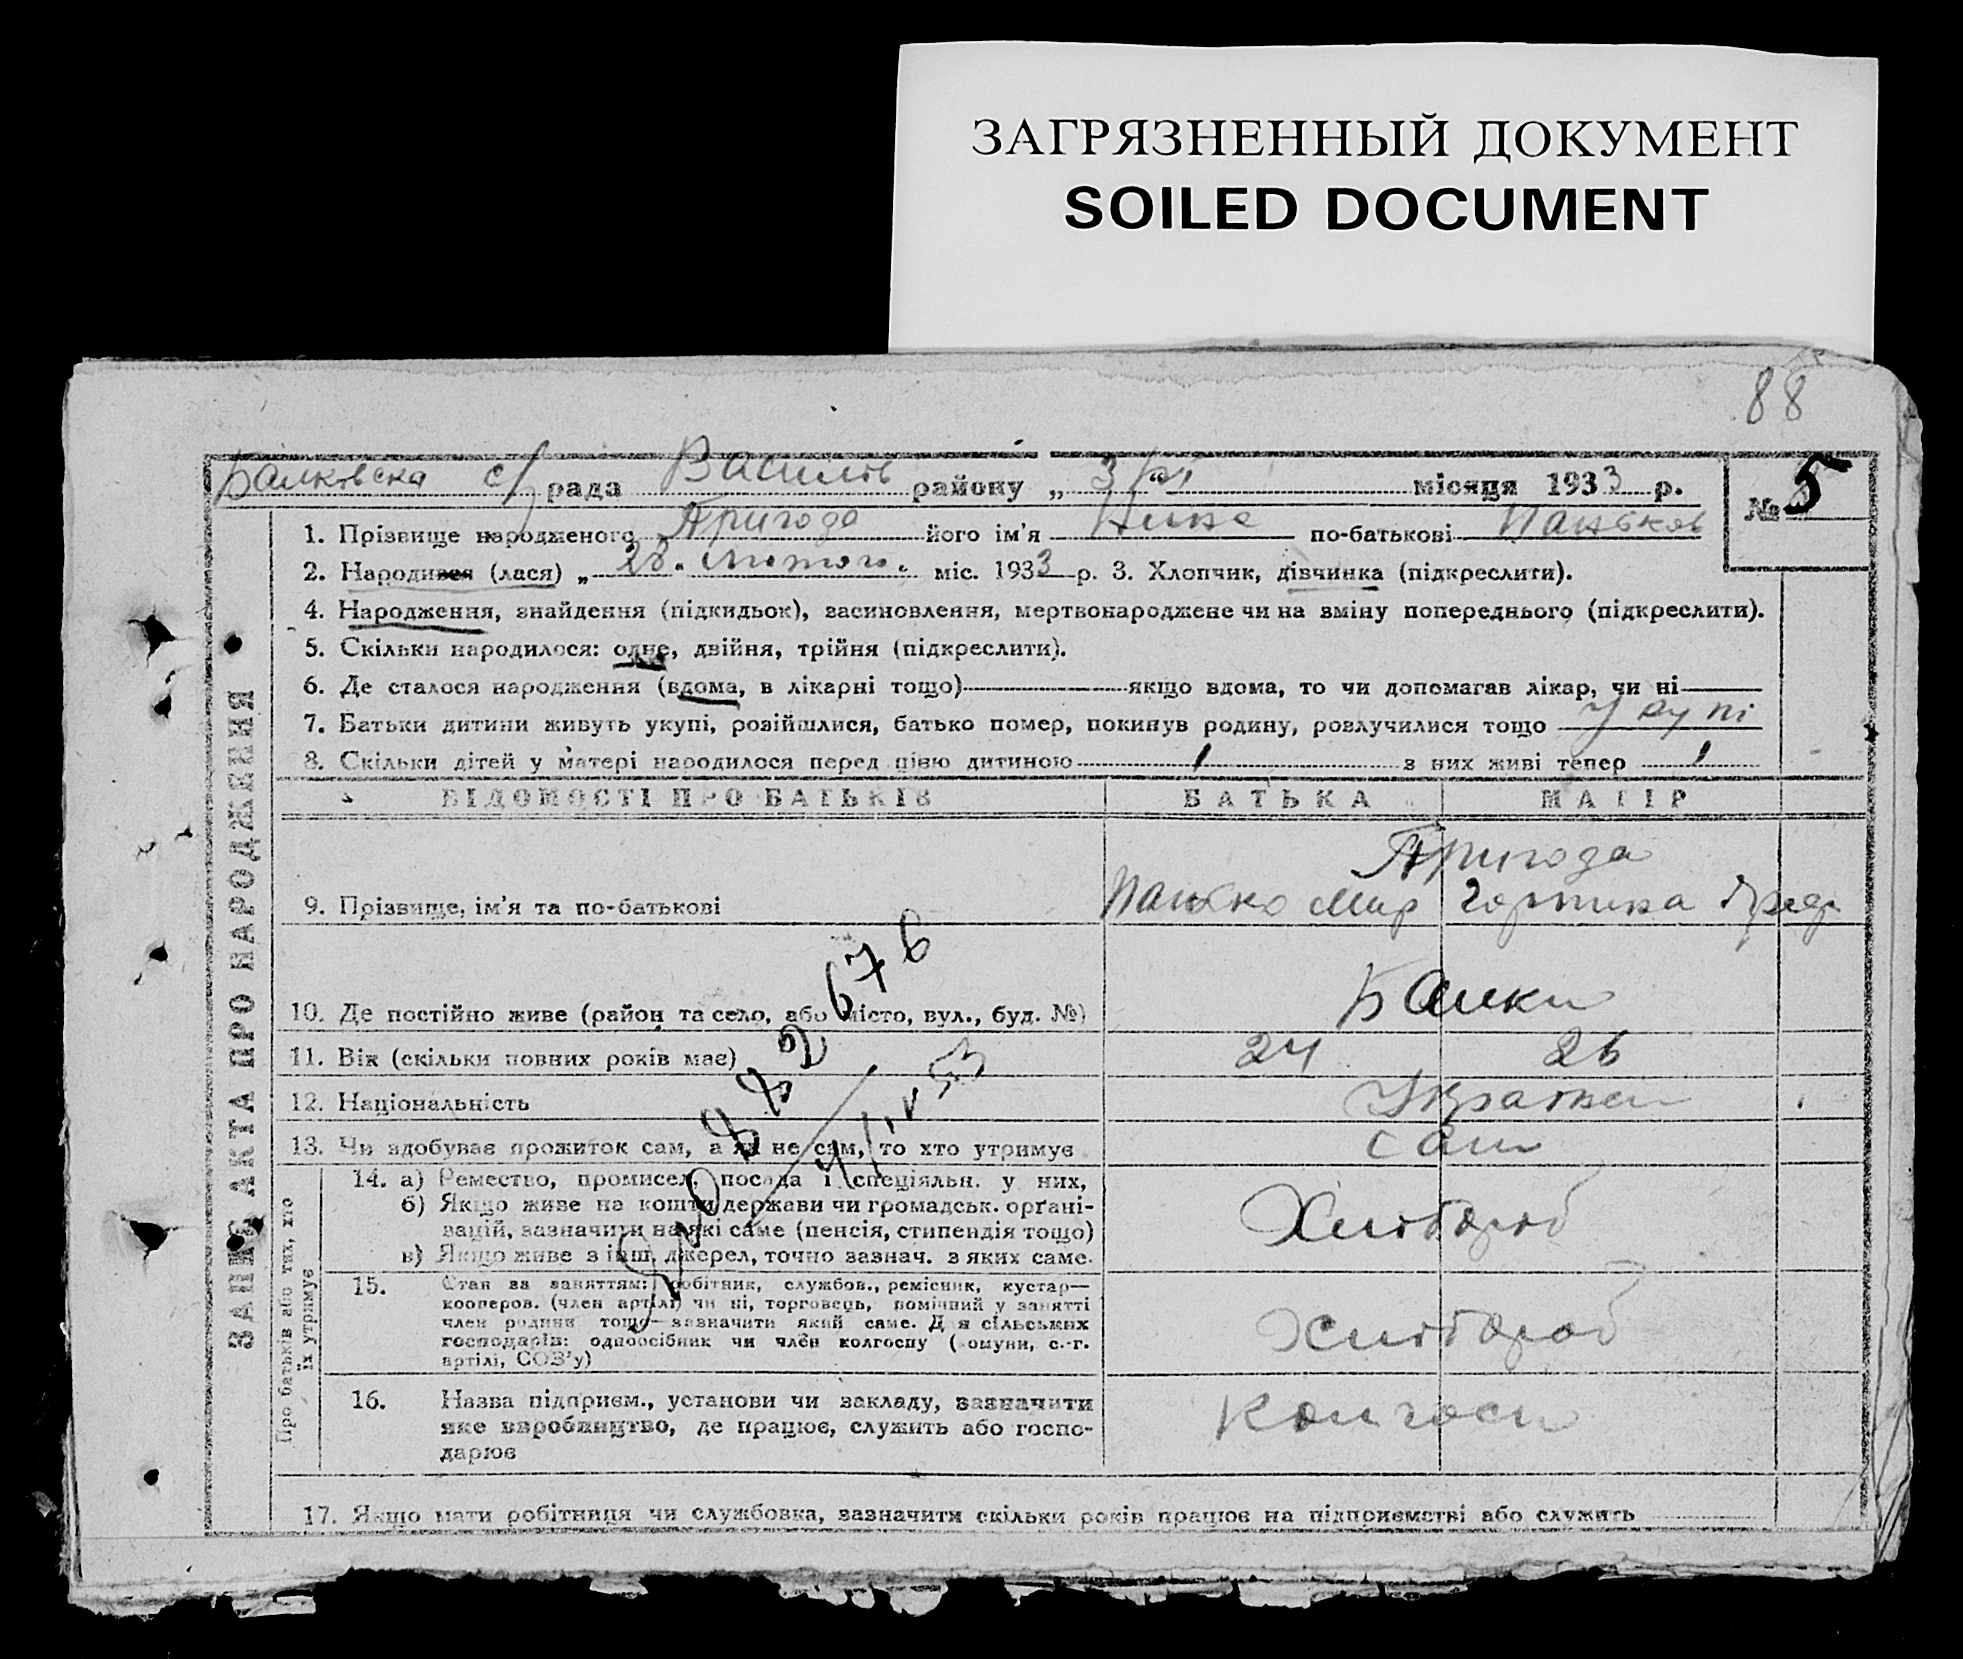 ЗАГРЯЗНЕННЫЙ ДОКУМЕНТ
SOILED DOCUMENT
88
Балковска с/ рада Василів району „ 3 місяця 1933 р.
№ 5
1. Прізвище народженого Пригода його ім'я Нина по-батькові Паньков
2. Народився (лася) „ 28 " лютого міс. 1933 р. 3. Хлопчик, дівчинка (підкреслити).
4. Народження, знайдення (підкидьок), засиновлення, мертвонароджене чи на зміну попереднього (підкреслити).
5. Скільки народилося: одне, двійня, трійня (підкреслити).
6. Де сталося народження (вдома, в лікарні тощо) якщо вдома, то чи допомагав лікар, чи ні
7. Батьки дитини живуть укупі, розійшлися, батько помер, покинув родину, розлучилися тощо У купі
8. Скільки дітей у матері народилося перед цією дитиною 1 з них живі тепер 1
ВІДОМОСТІ ПРО БАТЬКІВ БАТЬКА МАТІР
Пригода
9. Прізвище, ім'я та по-батькові Панько Мир Горпина
10. Де постійно живе (район та село, або місто, вул., буд. №) Балки
11. Вік (скільки повних років має) 24 26
12. Національність
13. Чи здобуває прожиток сам, а як не сам, то хто утримує сам
14. а) Ремество, промисел, посада і спеціяльн. у них,
б) Якщо живе на кошти держави чи громадськ. орґані-
зацій, зазначити на які саме (пенсія, стипендія тощо)
в) Якщо живе з інш. джерел, точно зазнач. з яких саме.
Хлібороб
15. Стан за заняттям: робітник, службов., ремісник, кустар—
кооперов. (член артілі) чи ні, торговець, помічний у занятті
член родини тощо—зазначити який саме. Для сільських
господарів: одноосібник чи член колгоспу (комуни, с.-г.
артілі, СОЗ'у)
Хлібороб
16. Назва підприєм., установи чи закладу, зазначити
яке виробництво, де працює, служить або госпо-
дарює
Колгосп
17. Якщо мати робітниця чи службовка, зазначити скільки років працює на підприємстві або служить
ЗАПИС АКТА ПРО НАРОДЖЕННЯ
Про батьків або тих, хто
їх утримує